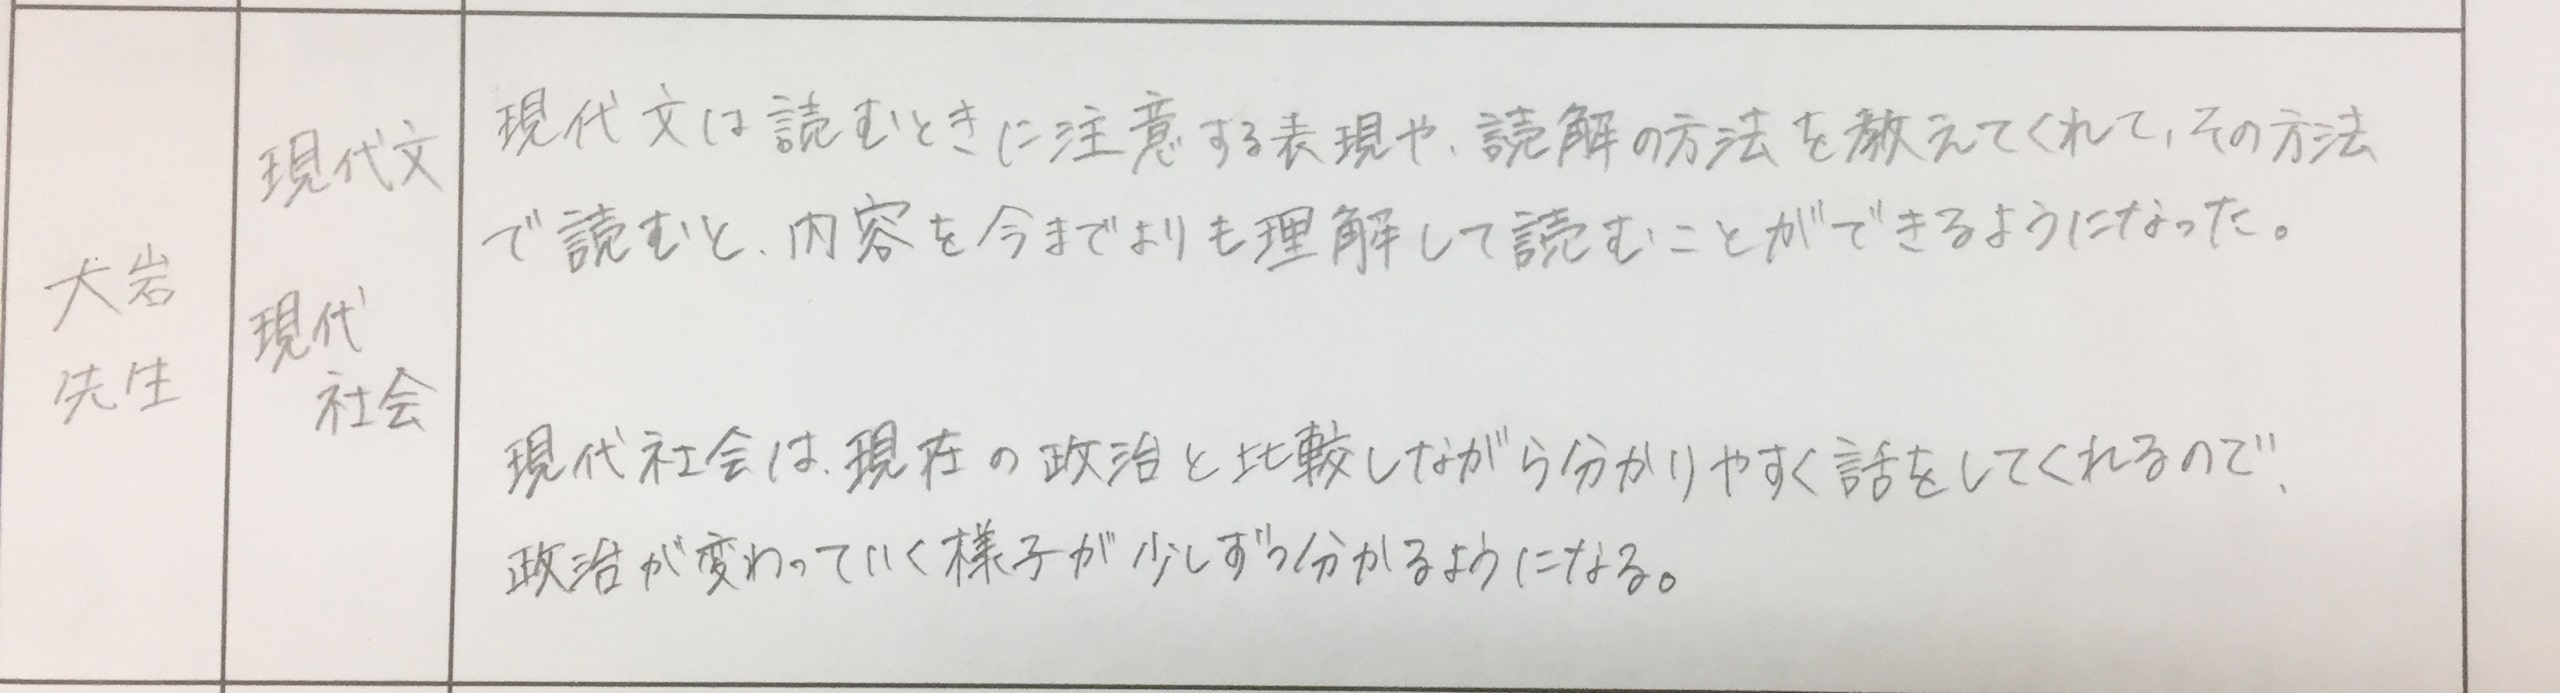 犬岩
先生
現代文
現代
社会
現代文は読むときに注意する表現や、読解の方法を教えてくれて、その方法
で読むと、内容を今までよりも理解して読むことができるようになった。
現代社会は、現在の政治と比較しながら分かりやすく話をしてくれるので、
政治が変わっていく様子が少しずつ分かるようになる。